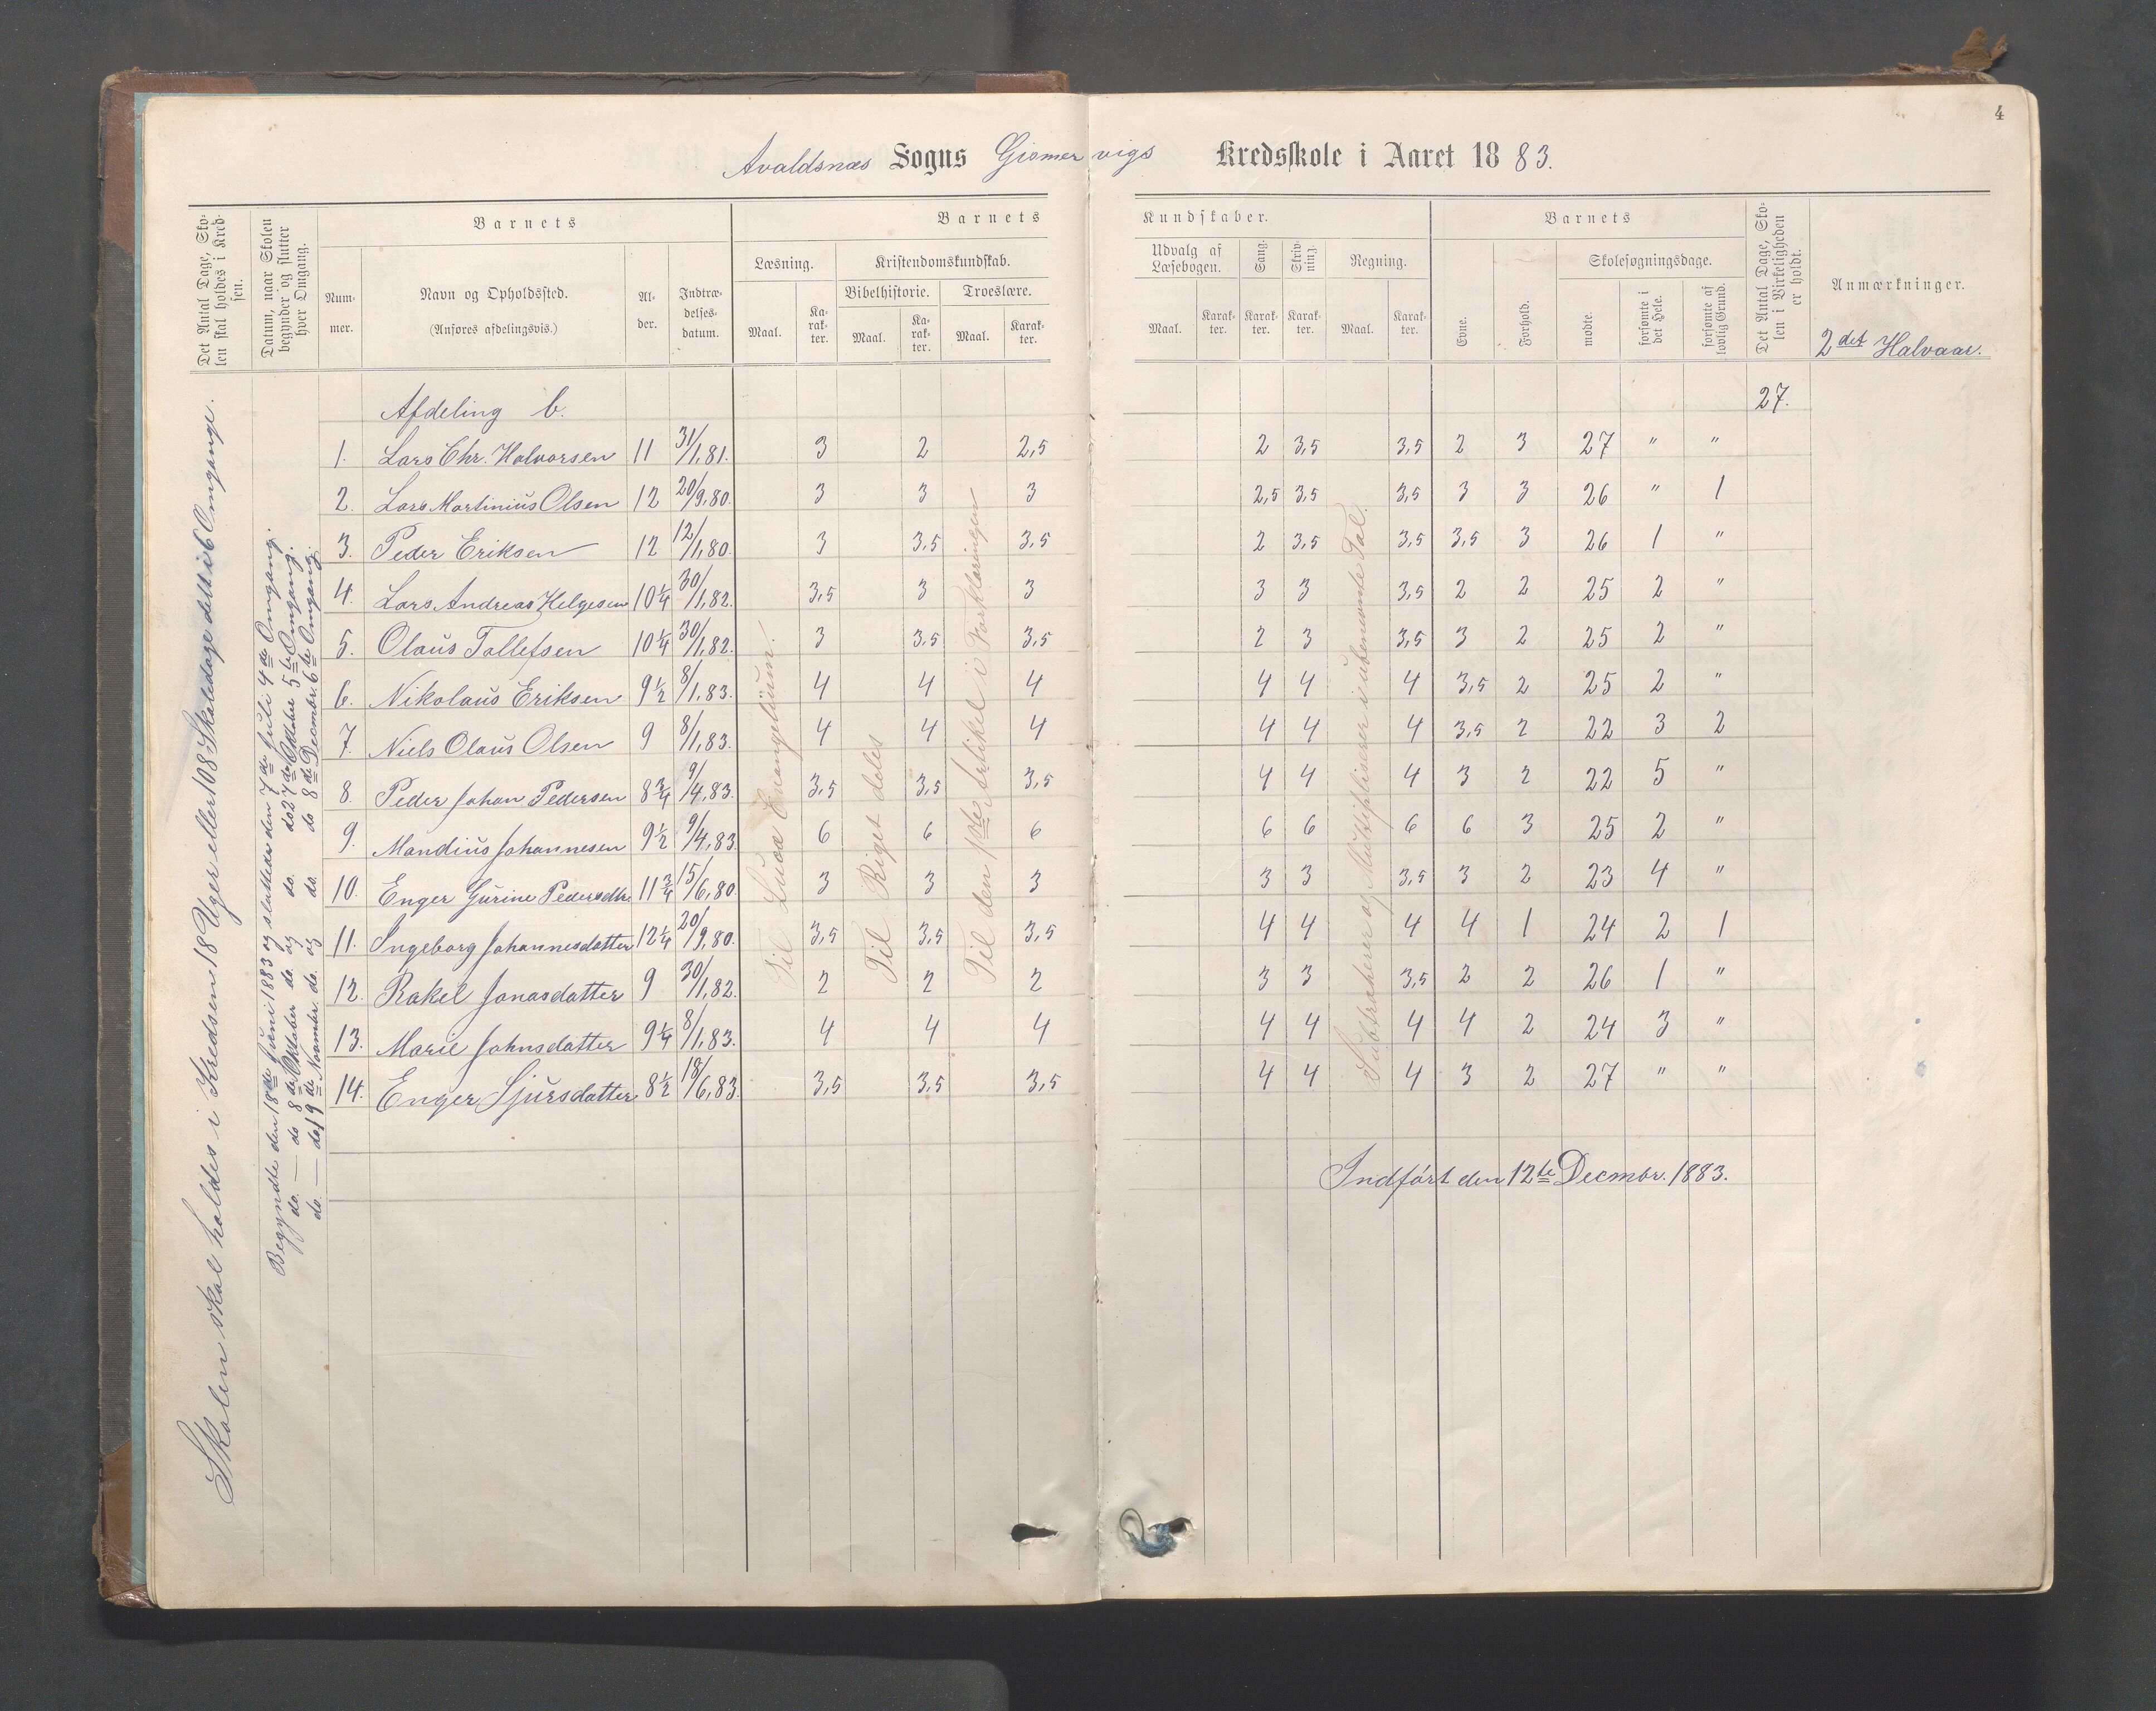 4
Avaldsnæs Sogns Gismervigs Kredsskole i Aaret 1883.
Det Antal Dage, Sko-
len skal holdes i Kred-
sen.
Datum, naar Skolen
begynder og slutter
hver Omgang.
Barnets
Num-
mer.
Navn og Opholdssted.
(Anføres afdelingsvis.)
Al-
der.
Indtræ-
delses-
datum.
Barnets Kundskaber.
Læsning.
Maal.
Ka-
rak-
ter.
Kristendomskundskab.
Bibelhistorie.
Maal.
Ka-
rak-
ter.
Troeslære.
Maal.
Karak-
ter.
Udvalg af
Læsebogen.
Maal.
Karak-
ter.
Sang.
Karak-
ter.
Skriv-
ning.
Karak-
ter.
Regning.
Maal.
Karak-
ter.
Barnets
Evne.
Forhold.
Skolesøgningsdage.
mødte.
forsømte i
det Hele.
forsømte af
lovlig Grund.
Det Antal Dage, Sko-
len i Virkeligheden
er holdt.
Anmærkninger.
2det Halvaar.
Skolen skal holdes i Kredsen 18 Uger eller 108 Skoledage delt i 6 Omgange.
Begyndte den 18de Juni 1883 og sluttede den 7de Juli 4de Omgang.
do. — do 8de Oktober do. og do. do 27de Oktober 5te Omgang.
do. — do 19de Novmbr. do. og do. do 8de Decembr. 6te Omgang.
Afdeling b. 27.
1. Lars Chr. Halvorsen 11 31/1,81. 3 2 2,5 2 3,5 3,5 2 3 27 " "
2. Lars Martinius Olsen 12 20/9,80. 3 3 3 2,5 3,5 3,5 3 3 26 " 1
3. Peder Eriksen 12 12/1,80. 3 3,5 3,5 2 3,5 3,5 3,5 3 26 1 "
4. Lars Andreas Helgesen 10 1/4 30/1,82. 3,5 3 3 3 3 3,5 2 2 25 2 "
5. Olaus Tollefsen 10 1/4 30/1,82. 3 3,5 3,5 2 3 3,5 3 2 25 2 "
6. Nikolaus Eriksen 9 1/2 8/1,83. 4 4 4 4 4 4 3,5 2 25 2 "
7. Niels Olaus Olsen 9 8/1,83. 4 4 4 4 4 4 3,5 2 22 3 2
8. Peder Johan Pedersen 8 3/4 9/4,83. 3,5 3,5 3,5 4 4 4 3 2 22 5 "
9. Mandius Johannesen 9 1/2 9/4,83. 6 6 6 6 6 6 6 3 25 2 "
10. Enger Gurine Pedersdtr. 11 3/4 15/6,80 3 3 3 3 3 3,5 3 2 23 4 "
11. Ingeborg Johannesdatter 12 1/4 20/9,80. 3,5 3,5 3,5 4 4 4 4 1 24 2 1
12. Rakel Jonasdatter 9 30/1,82. 2 2 2 3 3 3,5 2 2 26 1 "
13. Marie Johnsdatter 9 1/4 8/1,83. 4 4 4 4 4 4 4 2 24 3 "
14. Enger Sjursdatter 8 1/2 18/6,83. 3,5 3,5 3,5 4 4 4 3 2 27 " "
Til Lucæ Evangelium.
Til Riget deles
Til den 1ste Artikel i Forklaringen
Subtraherer og Multipliserer i ubenævnte Tal.
Indført den 12te Decmbr. 1883.